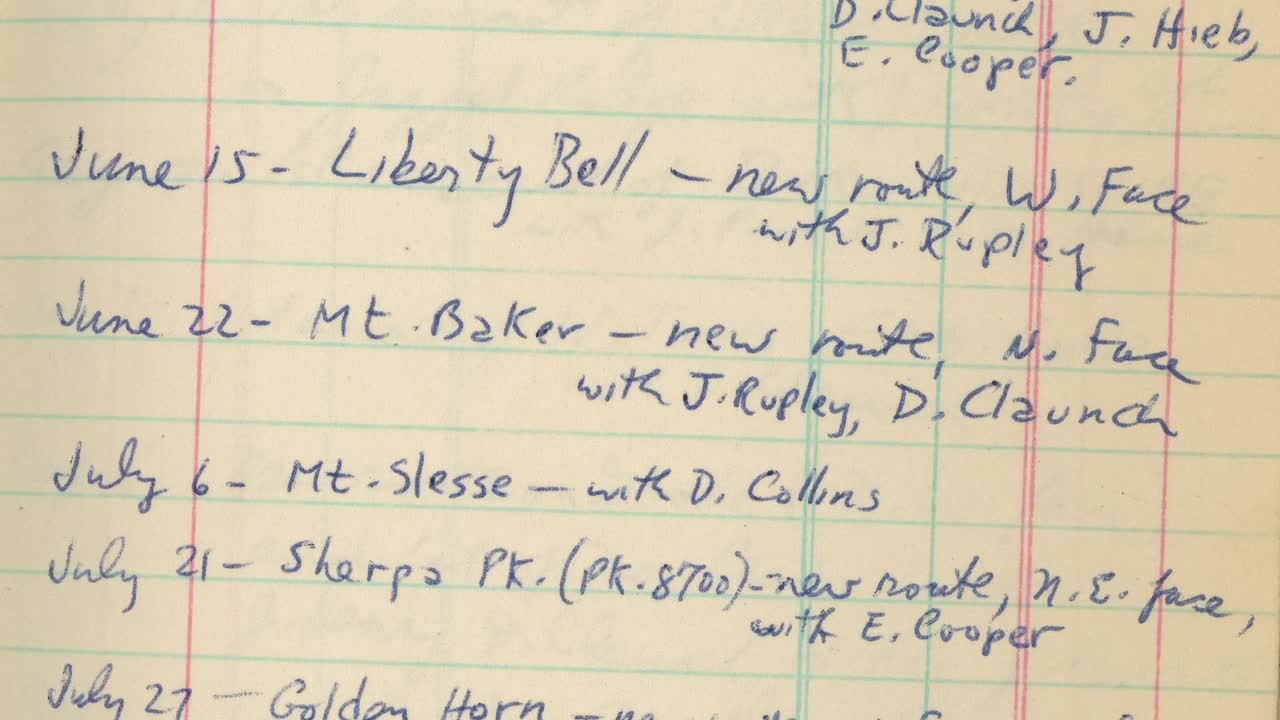 D. Claunch, J. Hieb,
E. Cooper.
June 15 - Liberty Bell - new route, W. Face
with J. Rupley
June 22 - Mt. Baker - new route, N. Face
with J. Rupley, D. Claunch
July 6 - Mt. Slesse - with D. Collins
July 21 - Sherpa Pk. (Pk. 8700) - new route, N.E. face,
with E. Cooper
July 27 - Golden Horn -